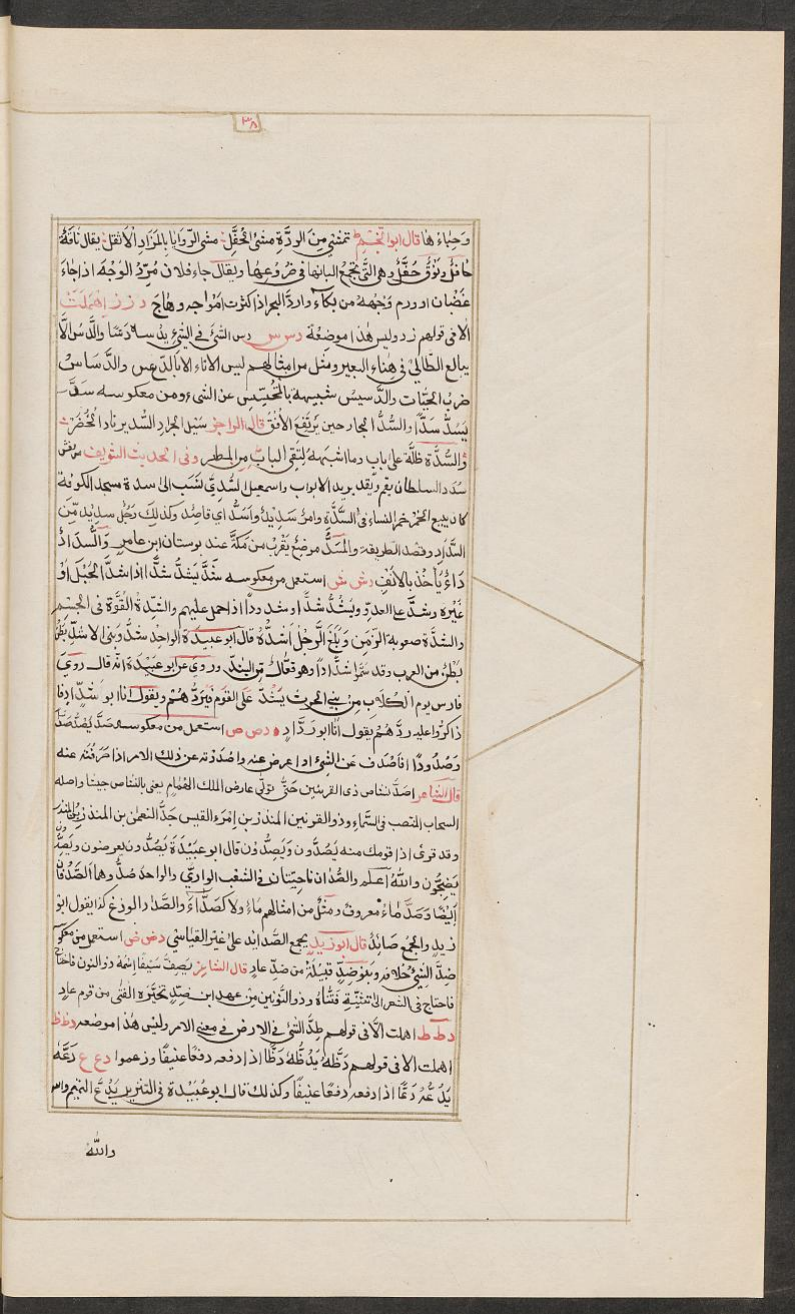 ٣٨
وحِبَاءُها قال ابو النجم تمشي مِنَ الردَّةِ مشيَ الحُفَّلِ مشي الرَّوَايا بالمَزَادِ الاثقل يقال ناقةٌ
حَافلٌ ونُوْقٌ حُفَّلٌ وهي التي تجمع البانها في ضُرُوعِها ويقال جاء فلان مُرِدَّ الوَجْه اذا جاءَ
غَضْبان او ورم وَجهه من بكآء وارد البحر اذا كثرت امْوَاجه وهاج د ز ز اهملت
الا في قولهم زد وليس هٰذا موضِعهُ د س س دس الشئ في الشئ يدسه دَسًّا والدَّسُ الَّا
يبالغ الطَّالِيْ في هِنَاء البعير ومثل من امثالهم ليس الاناء الا بالدعس والدَّسَاسُ
ضربُ الحيّات والدَّسيسُ شبيهه بالمُتَجَسِّسِ عن الشيء ومن معكوسه سَدَّ
يَسُدُّ سَدًّا والسُّدُّ الجراد حين يَرْتَفِع الاُفُقَ قال الراجز سَيْل الجرادِ السُّدِ يرتاد الخُضَرْ
والسُّدَّة ظلَّة على باب وما اشْبَهه لِتَقِي البابَ مِن المطر وفي الحديث الشريف من يغش
سُدَد السلطان يقم ويقعد يريد الابواب واسمعيل السُّدِيُّ نُسب الى سدة مسجد الكوفة
كان يبيع الخُمُر خُمر النساء في السُّدَّةِ وامرٌ سَدِيْدٌ واَسَدُّ اي قاصِد وكذلك رَجُل سديد مِن
السَّدَادِ وقصد الطريقة والمَسَدُّ موضعٌ يَقْرُبُ من مَكَّةَ عند بوستان ابن عامرٍ والسُّدَادُ
دَآءٌ يأخُذُ بالاَنْفِ د ش ش استعمل من معكوسه شَدَّ يَشُدُّ شَدًّا اذا شدَّ الحَبْلَ اَوْ
غَيْره وشدَّ على العدو ويَشُدُّ شَدًّا وشدودًا اذا حمل عليهم والشِدَّةُ القُوَّة في الجسم
والشدَّة صعوبة الزَمَن وَبَلَغَ الرَّجُل اَشُدَّهُ قال ابو عبيدة الواحد شدٌّ وبنو الاشدّ بَطْنٌ
بَطْنٌ من العرب وقد سَمَّوا شدَّادًا وهو فَعَّال مِن الشِدّ وروي عن ابو عبيدة انه قال روي
فارس يوم الكُلَابِ مِن بني الحرث يَشُدّ عَلى القَوم فَيَردُّ هُمْ ويقول انا ابو شدّاد فا
ذا كرُّوا عليه ردَّ هُمْ يقول انا ابو ردَّاد د ص ص استعمل من معكوسه صَدَّ يَصُدّ صَدًّا
وَصُدُودًا اذا صَدَف عَن الشيْءِ او اعرض عنه واصْدَدْته عن ذلك الامر اذا صَرفْتَه عنه
قال الشاعر اصَدَّ نشاص ذى القرنين حَتّى تولّى عارض الملك الهُمَام يعني بالنشاص جيشًا واصله
السحاب المنتصب في السَّمَاءِ وذو القرنين المنذر بن اِمْرَءِ القيس جَدَّ النعمٰن بن المنذر بن المنذر
وقد قرئَ اذا قومك منه يَصُدُّون وَيَصِدُّوْن قال ابو عبيدة يَصُدُّون يعرضون ويَصِدُّون
يَضِجُّون واللّٰه اعلم والصُدَّان ناحِيَتان في الشعْب الوادِيّ والواحد صُدٌّ وهما الصَّدَفان
اَيضًا وَصَدَّاءُ مَاءٌ مَعروفٌ ومَثَلٌ من امثالهم مَاءٌ ولا كصَدَّاءَ والصُّدَادُ الوزغ كذا يقول ابو
زيد والجمع صَدَائِد قال ابو زيد يجمع الصُدَايد على غيرِ القياسِ د ض ض استعمل من معكو
ضِدُّ الشيْ خلافه وبنو ضِدٍّ قبيلة من ضدّ عاد قال الشاعر يَصِفُ سَيْفًا اِسْمُه ذو النون فاحتاج
فاحتاج في الشعر الى تثنيَةٍ فثنّاهُ وذو النُّونينِ مِن عهد ابن ضِدٍّ تخَيَّره الفَتى من قوم عادِ
د ط ط اهملت الَّا في قولهم طِدَّ الشئ في الارض في معنى الامر وليس هٰذا موضعه د ظ ظ
اهملت الا في قولهم دَظَّهُ يَدُظُّهُ دَظًّا اذا دفعه دفعًا عنيفًا وزعموا د ع ع دَعَّه
يَدُعُّهُ دَعًّا اذا دفعه دفعًا عنيفًا وكذلك قال ابو عُبَيْدة في التنزيل يَدُعُّ اليتيم واس
واللّٰه